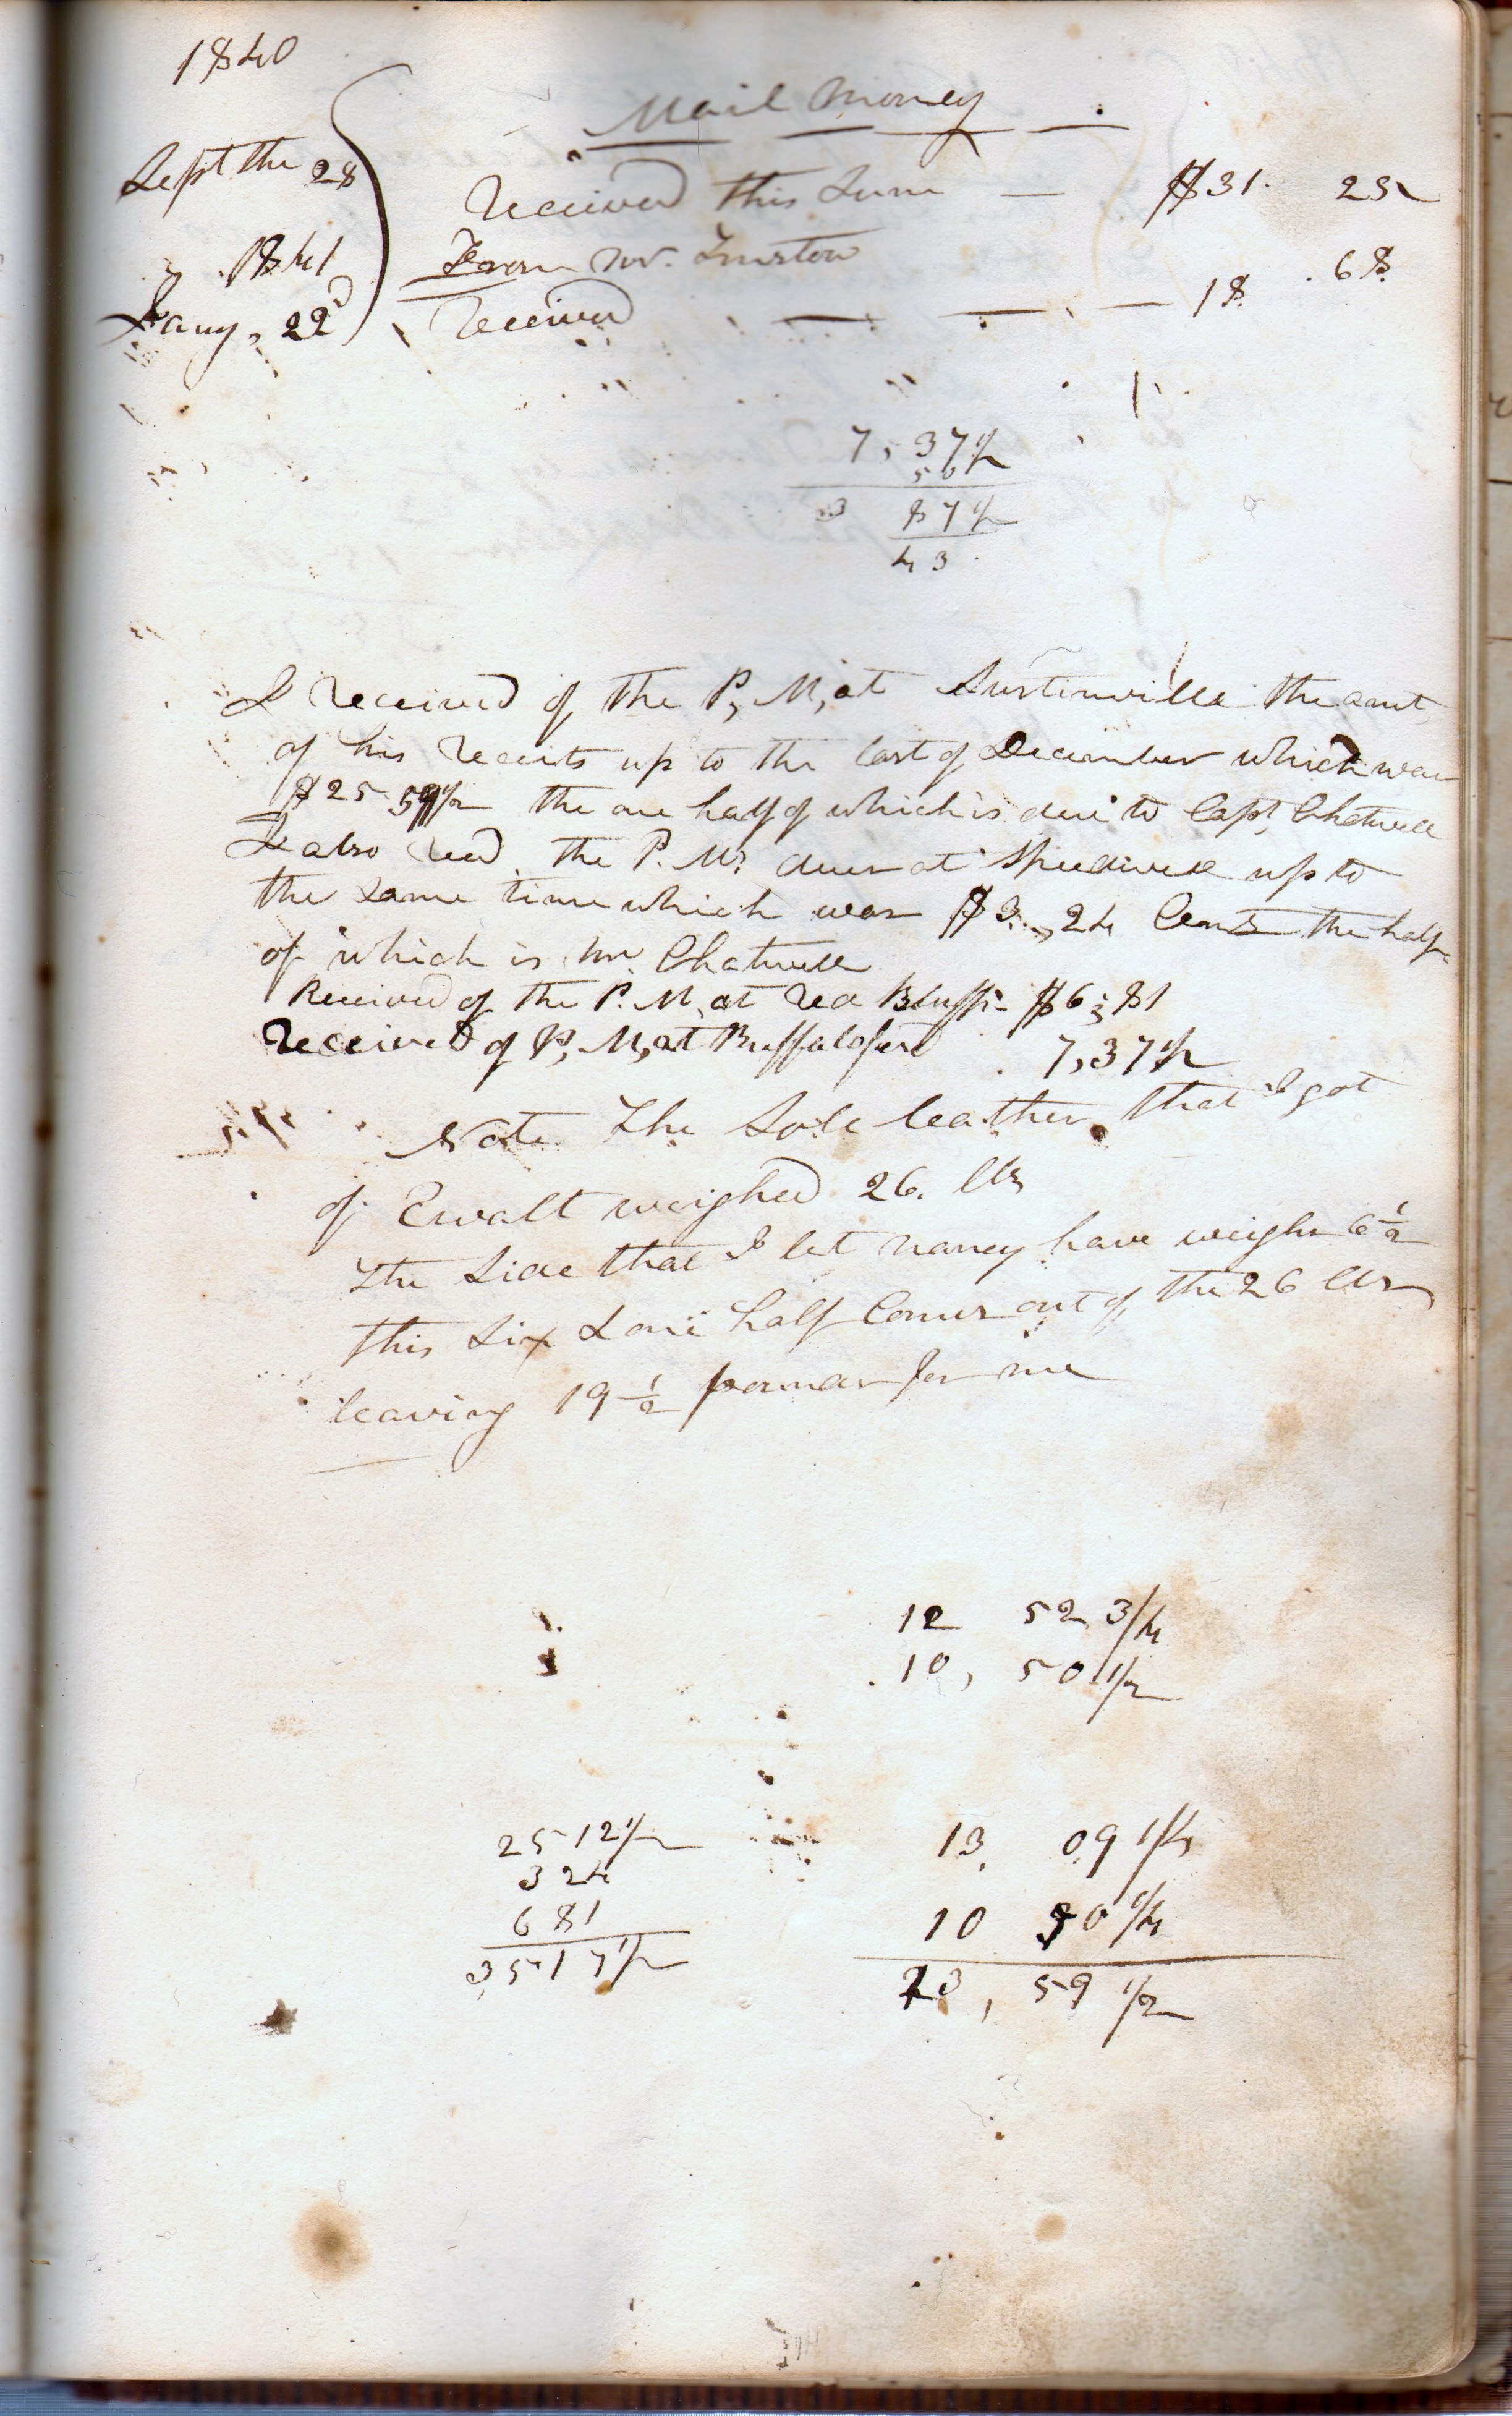 1840
Mail Money
Sept the 28 Received this Sum — $31. 25
1841 From Mr.
Jany, 22d Received — 18. 68
7, 37 1/2
50
3 87 1/2
43
I Received of the P, M, at Austinville the amt
of his receits up to the last of December which was
$25 59 1/2 the one half of which is due to Capt, Chatwell
I also recd the P. Ms dues at Speedwell up to
the same time which was $3.,24 Cents the half
of which is Mr. Chatwell
Received of the P. M, at Red Bluff $6; 81
Received of P, M, at Buffaloford 7,37 1/2
Note The Sole leather that I got
of Ewalt weighed 26. lbs
The Side that I let nancy have weighs 6 1/2
this Six & one half Comes out of the 26 lbs
leaving 19 1/2 pounds for me
12 52 3/4
10, 50 1/2
25 12 1/2
3 24
6 81
35 17 1/2
13, 09 1/4
10 50 1/4
23, 59 1/2